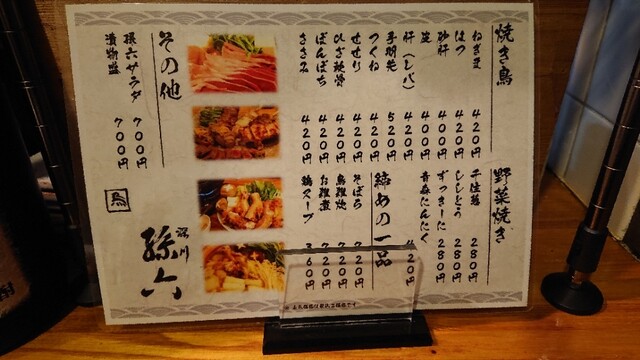 焼き鳥
ねぎま 420円
はつ 420円
砂肝 400円
皮 400円
肝(レバ) 400円
手羽先 520円
つくね 420円
せせり 420円
ひざ軟骨 420円
ぼんぼち 420円
ささみ 420円
野菜焼き
千住葱 280円
ししとう 280円
ずっきーに 280円
青森にんにく 420円
締めの一品
そぼろ 720円
鳥雑炊 720円
お雑煮 720円
鶏スープ 360円
その他
孫六サラダ 700円
漬物盛 700円
鳥
深川
孫六